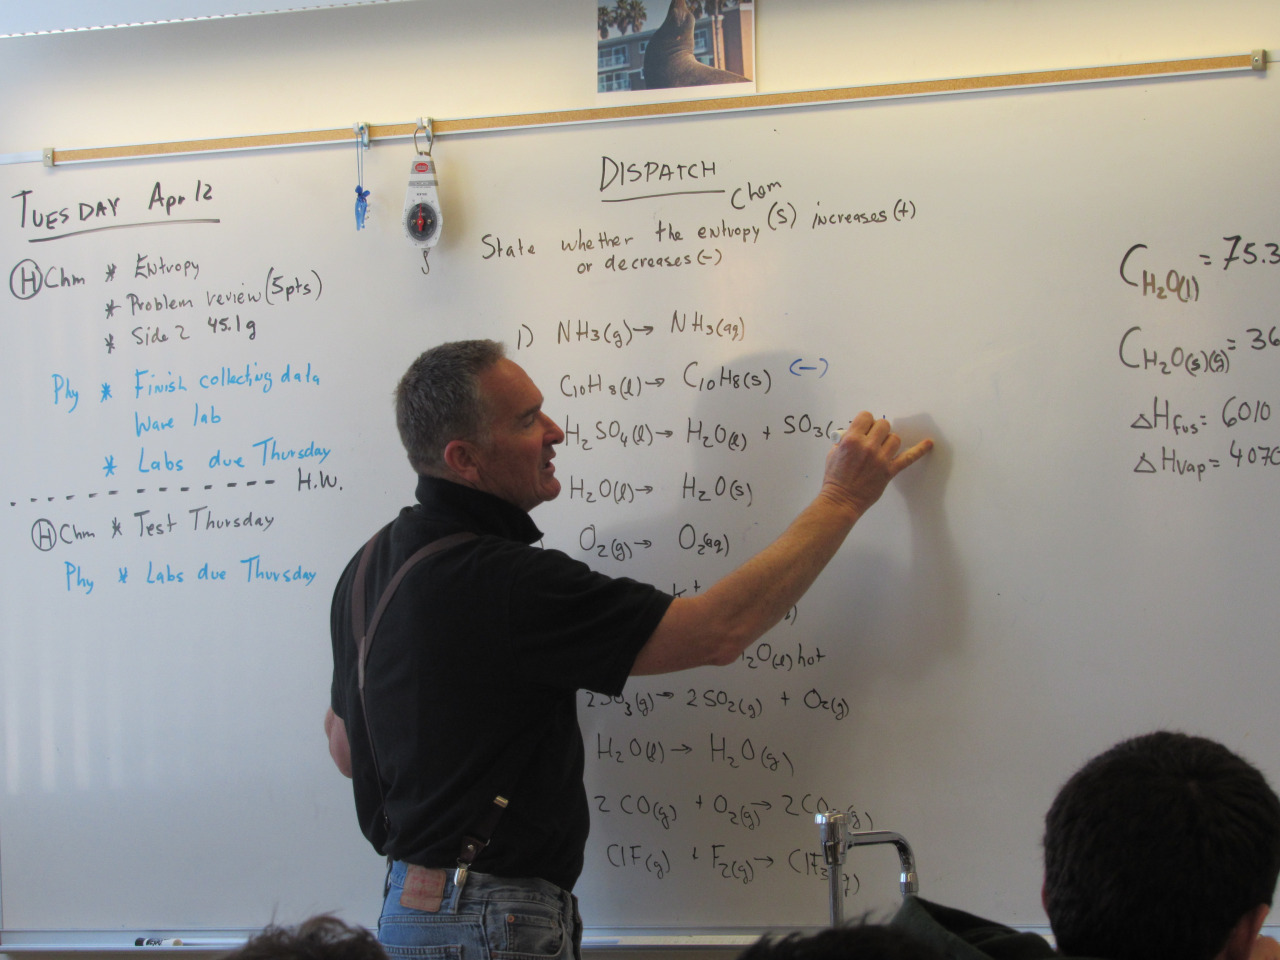 TUESDAY Apr 12
(H) Chm * Entropy
* Problem review (5pts)
* Side 2 45.1g
Phy * Finish collecting data
Wave lab
* Labs due Thursday
H.W.
(H) Chm * Test Thursday
Phy * Labs due Thursday
DISPATCH
Chem
State whether the entropy (S) increases (+)
or decreases (-)
1) NH3(g) → NH3(aq)
C10H8(l) → C10H8(s) (-)
H2SO4(l) → H2O(l) + SO3(
H2O(l) → H2O(s)
O2(g) → O2(aq)
+
2O(l) hot
2SO3(g) → 2SO2(g) + O2(g)
H2O(l) → H2O(g)
2CO(g) + O2(g) → 2CO2(g)
ClF(g) + F2(g) → ClF3(g)
C H2O(l) = 75.3
C H2O(s)(g) = 36
ΔHfus = 6010
ΔHvap = 4070